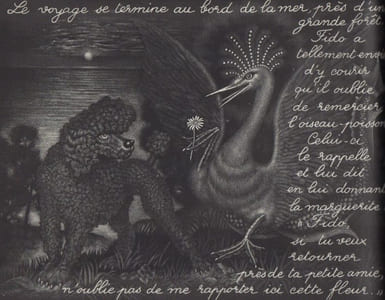 Le voyage se termine au bord de la mer, près d'une
grande forêt.
Fido a
tellement envie
d'y courir
qu'il oublie
de remercier
l'oiseau-poisson.
Celui-ci
le rappelle
et lui dit
en lui donnant
la marguerite
« Fido,
si tu veux
retourner
près de ta petite amie,
n'oublie pas de me rapporter ici cette fleur... »